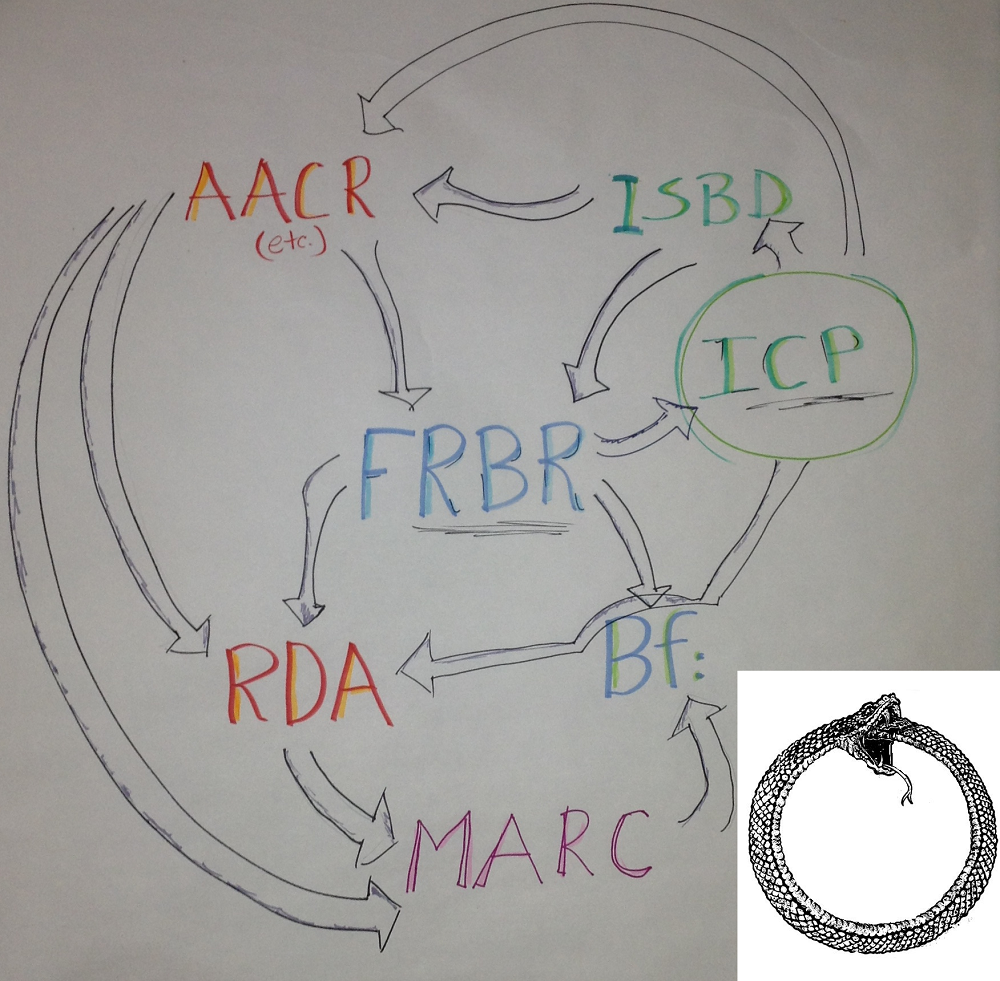 AACR
(etc.)
ISBD
ICP
FRBR
RDA
Bf:
MARC